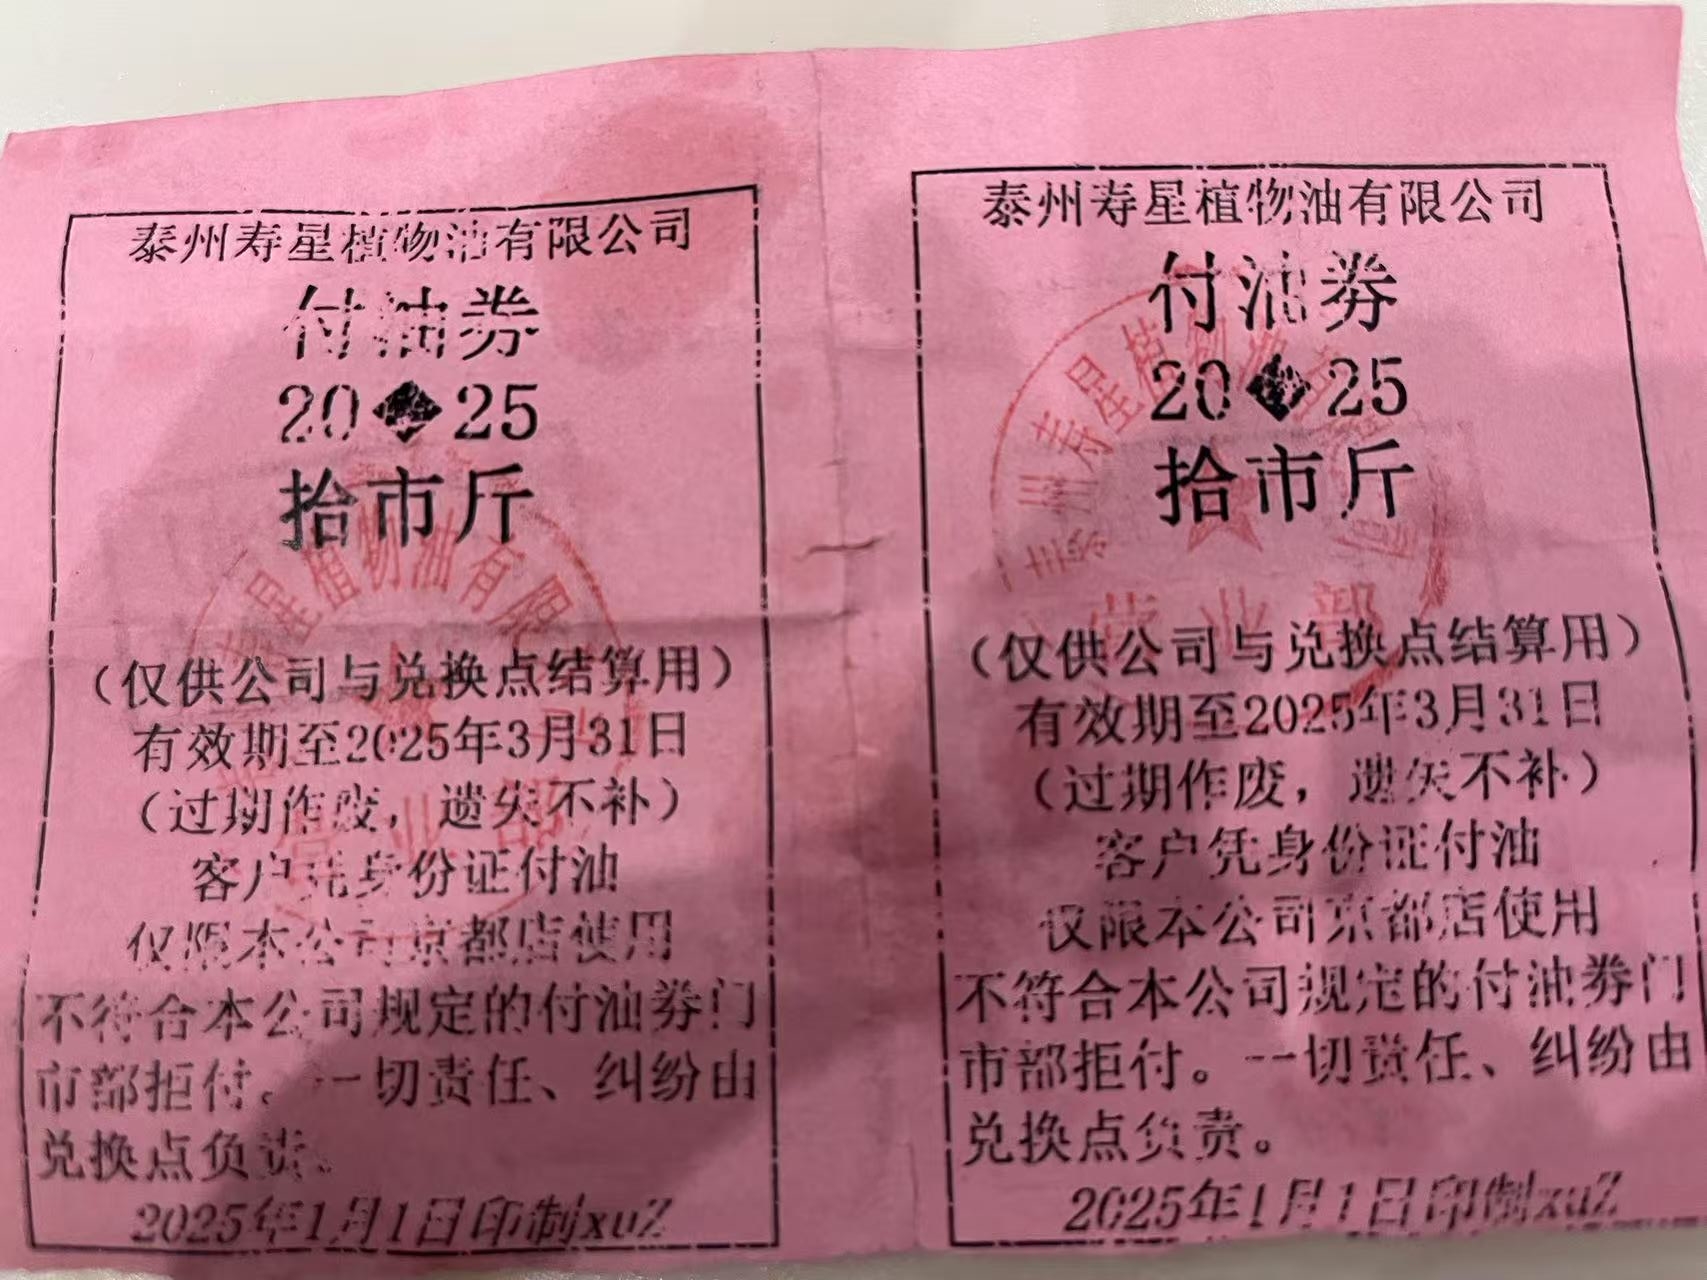 泰州寿星植物油有限公司
付油券
20◆25
拾市斤
寿星植物油有限
营业部
（仅供公司与兑换点结算用）
有效期至2025年3月31日
（过期作废，遗失不补）
客户凭身份证付油
仅限本公司京都店使用
不符合本公司规定的付油券门
市部拒付。一切责任、纠纷由
兑换点负责。
2025年1月1日印制xuZ
泰州寿星植物油有限公司
付油券
20◆25
拾市斤
泰州寿星植物油有限公司
营业部
（仅供公司与兑换点结算用）
有效期至2025年3月31日
（过期作废，遗失不补）
客户凭身份证付油
仅限本公司京都店使用
不符合本公司规定的付油券门
市部拒付。一切责任、纠纷由
兑换点负责。
2025年1月1日印制xuZ